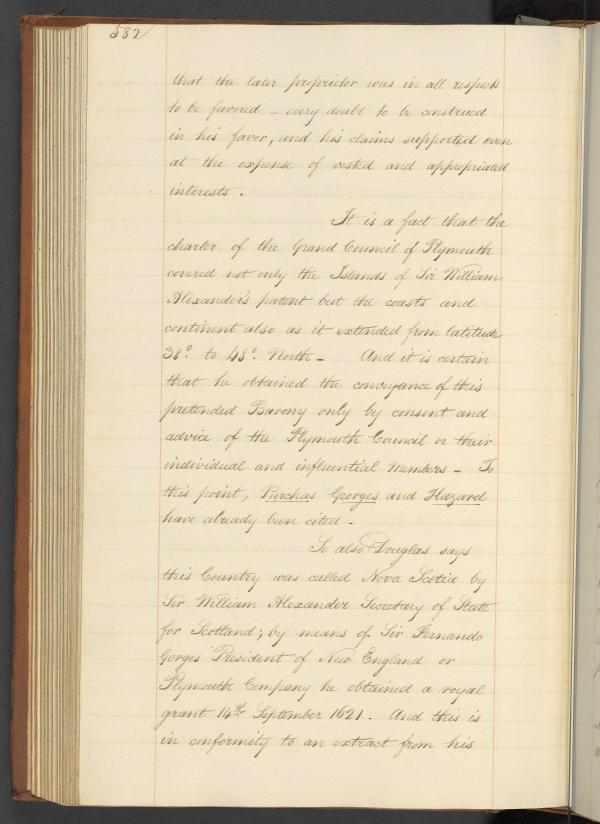 582
that the later proprietor was in all respects
to be favored - every doubt to be construed
in his favor, and his claims supported even
at the expense of vested and appropriated
interests.
It is a fact that the
charter of the Grand Council of Plymouth
covered not only the Islands of Sir William
Alexander's patent but the coasts and
continent also as it extended from latitude
38° to 48° North - And it is certain
that he obtained the conveyance of this
pretended Barony only by consent and
advice of the Plymouth Council or their
individual and influential Members - To
this point, Purchas Gorges and Hazard
have already been cited -
So also Douglas says
this Country was called Nova Scotia by
Sir William Alexander Secretary of State
for Scotland; by means of Sir Fernando
Gorges President of New England or
Plymouth Company he obtained a royal
grant 14th September 1621. And this is
in conformity to an extract from his